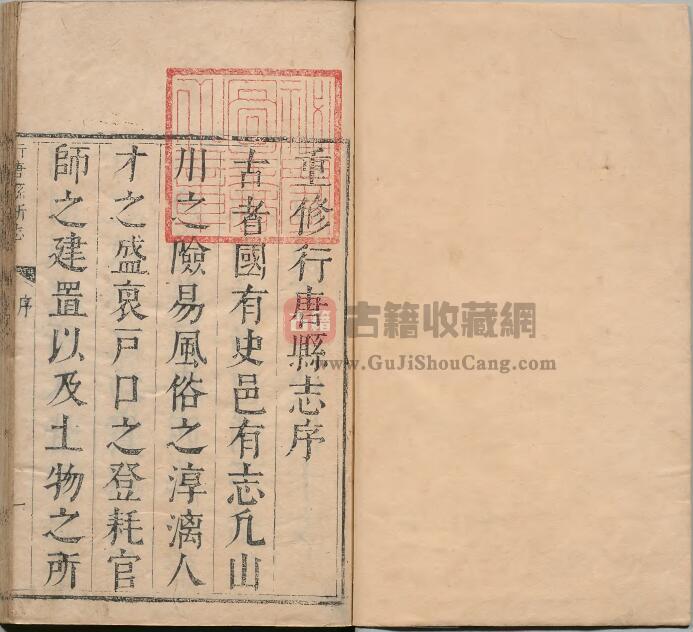 重修行唐縣志序
古者國有史邑有志凡山
川之險易風俗之淳漓人
才之盛衰戸口之登耗官
師之建置以及土物之所
行唐縣新志
序
一
古籍
古籍收藏網
www.GuJiShouCang.com